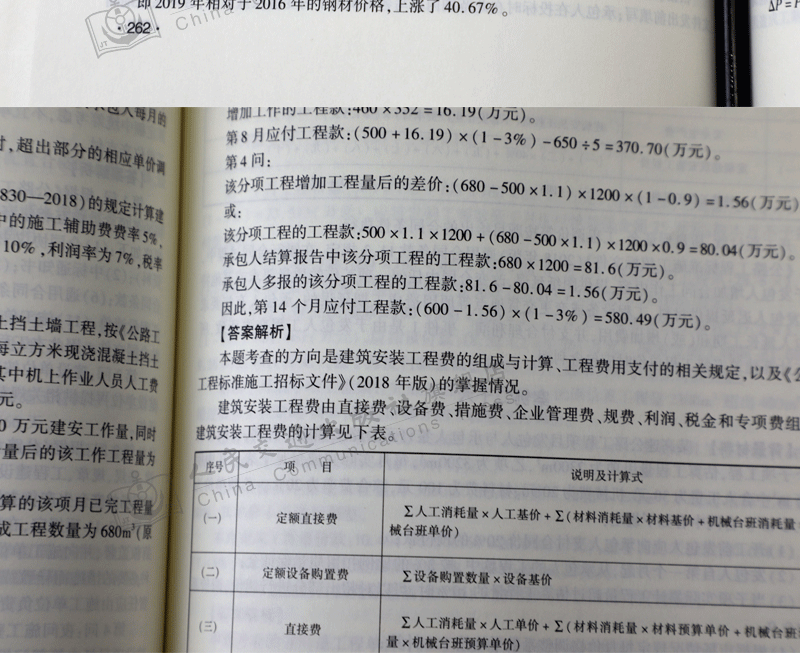 即 2019 年相对于 2016 年的钢材价格，上涨了 40.67%。
·262·
ΔP=
包人每月的
时，超出部分的相应单价调
830—2018)的规定计算建
中的施工辅助费费率5%，
10%，利润率为7%，税率
土挡土墙工程，按《公路工
每立方米现浇混凝土挡土
其中机上作业人员人工费
元。
0 万元建安工作量，同时
量后的该工作工程量为
算的该项月已完工程量
成工程数量为 680m³(原
增加工作的工程款：460×352=16.19(万元)。
第 8 月应付工程款：(500+16.19)×(1-3%)-650÷5=370.70(万元)。
第 4 问：
该分项工程增加工程量后的差价：(680-500×1.1)×1200×(1-0.9)=1.56(万元)
或：
该分项工程的工程款：500×1.1×1200+(680-500×1.1)×1200×0.9=80.04(万元)。
承包人结算报告中该分项工程的工程款：680×1200=81.6(万元)。
承包人多报的该分项工程的工程款：81.6-80.04=1.56(万元)。
因此，第 14 个月应付工程款：(600-1.56)×(1-3%)=580.49(万元)。
【答案解析】
本题考查的方向是建筑安装工程费的组成与计算、工程费用支付的相关规定，以及《公
工程标准施工招标文件》(2018 年版)的掌握情况。
建筑安装工程费由直接费、设备费、措施费、企业管理费、规费、利润、税金和专项费组
建筑安装工程费的计算见下表。
序号 项 目 说明及计算式
(一) 定额直接费 Σ人工消耗量×人工基价+Σ(材料消耗量×材料基价+机械台班消耗量
械台班单价)
(二) 定额设备购置费 Σ设备购置数量×设备基价
(三) 直接费 Σ人工消耗量×人工单价+Σ(材料消耗量×材料预算单价+机械台班
量×机械台班预算单价)
China Communications